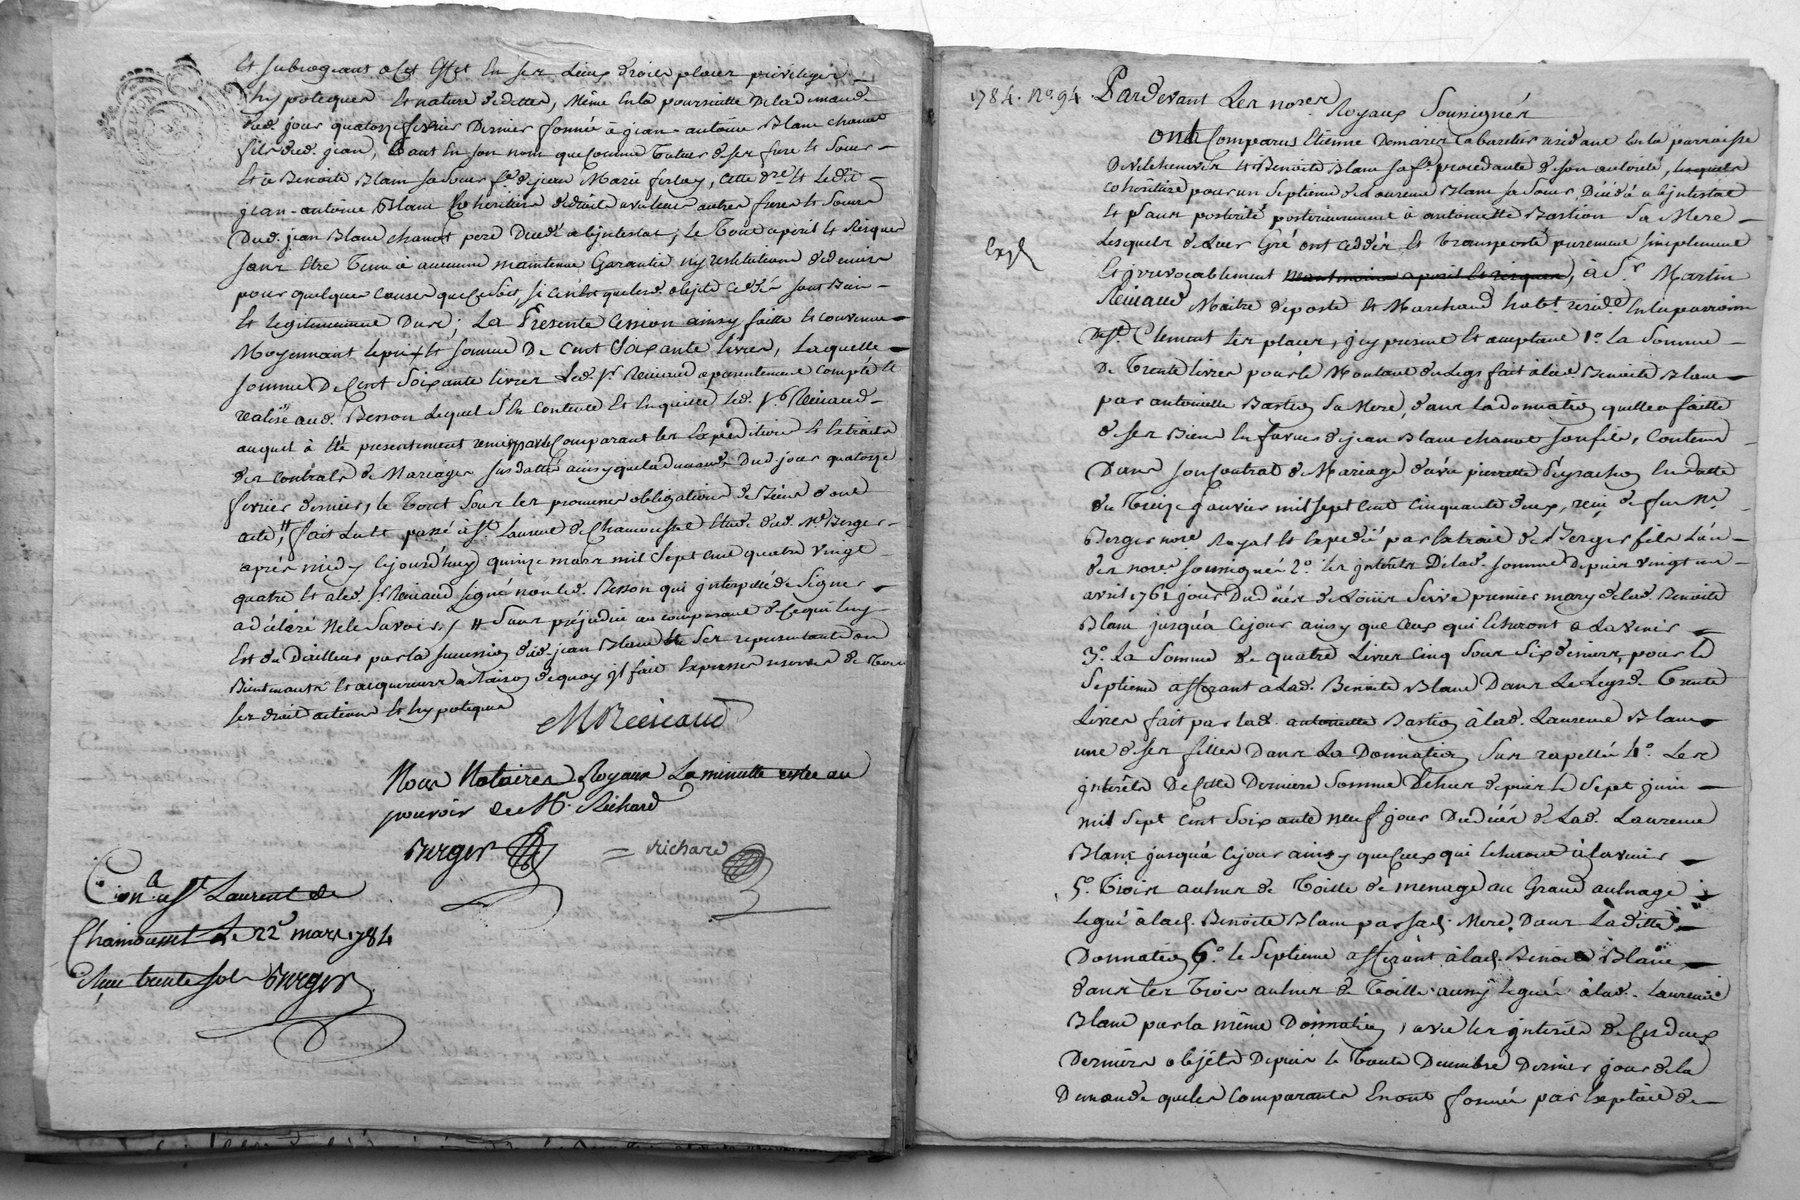 Et subrogeant a cet effet en ses Lieux droits places privileges
hypoteques et nature de dettes, même en la poursuitte de la demande
dud. jour quatorze fevrier Dernier formée à jean-antoine Blanc chanot
fils dud. jean, tant en son nom que comme Tuteur de ses frere et soeurs
Et à Benoite Blanc sa soeur fe. de jean Marie ferlay, cette dre. et ledit
jean-antoine Blanc Cohéritiers de droit avec leurs autres freres et soeurs
Dud. jean Blanc chanot pere Decedé abjntestat; le Tout a peril et risques
sans être Tenu à aucune maintenue Garantie ny restitution de deniers
pour quelques causes que ce soit, si ce n'est que lesd. objets cedés sont Bien
et legitimement Dus; La Presente Cession ainsy faitte et convenue
Moyennant le prix et somme De cent soixante livres, Laquelle
somme De Cent Soixante livres Led. Sr. Reinaud a presentement compté et
realisé aud. Besson Lequel s'en contente et en quitte led. Sr. Reinaud
auquel à été presentement remis par le Comparant les Expéditions et extraits
des contrats de Mariages susdattés ainsy que la demande Dud jour quatorze
fevrier dernier, le Tout sous les promesses obligations de Biens dont
acte, # fait Lu et passé à St. Laurent de Chamousset Etude dud. Me Berger
après midy Cejourd'huy quinze mars mil sept cent quatre vingt
quatre et aled. Sr Reinaud signé non led. Besson qui jnterpellé de signer
a déclaré ne le savoir. / # Sans préjudice au comparant de ce qui luy
Est du D'ailleurs par la succession dud jean Blanc et ses representants ou
Bientenants et acquereurs a raison de quoy jl fait Expresses reserves de Tous
ses droits actions et hypoteques
MReinaud
Nous Notaires Royaux La minutte restée au
pouvoir de Me. Richard
Berger
Richard
Con.a St Laurent de
Chamousset Le 22e mars 1784
Reçu trente sols Berger
1784. No. 94 Pardevant Les nores
Royaux Soussignés
Expé
Ont Comparus Etienne Demares Cabaretier residant En la parroisse
De villechenève et Benoite Blanc sa fe. procedante de son autorité, Lesquels
cohéritiere pour un Septieme de Laurence Blanc sa soeur, Decédé abjntestat
et sans posterité posterieurement à antoinette Bastion Sa Mere
Lesquels de Leurs Gré ont ceddés et transporté purement simplement
et jrrevocablement à Sr Martin
Reinaud Maitre de poste et Marchand habt. reside. En la parroisse
De St. Clement les places, jcy present et acceptant 1o. La Somme
De Trente livres pour le Montant du Legs fait à lad. Benoite Blanc
par antoinette Bastion Sa Mere, dans la donnation quelle a faitte
de ses Biens En faveur de jean Blanc chanot son fils, Contenu
Dans son Contrat de Mariage d'avec pierrette En datte
du Treize janvier mil sept cent cinquante deux, reçu de feu Me
Berger nore Royal et expedié par extrait de Berger fils L'un
des nores soussignés. 2o. les jnterets De lad. somme Depuis vingt un
avril 1761 jour Du décès de Louis Serve premier mary de lad. Benoite
Blanc jusqu'à Cejour ainsy que Ceux qui Echeront à Lavenir
3o. La Somme de quatre Livres Cinq Sous Six deniers, pour le
Septieme afférant a Lad. Benoite Blanc Dans Le Legs de Trente
Livres fait par lad. antoinette Bastion à lad. Laurence Blanc
une de ses filles Dans La Donnation Sus rapellée 4o. Les
jnterêts De cette Derniere Somme Echus depuis le Sept juin
mil Sept Cent Soixante neuf jour Du décès de Lad. Laurence
Blanc jusqu'à Cejour ainsy que Ceux qui Echeront à Lavenir
5o. Trois aulnes de Toille de menage au Grand aulnage
legué à lad. Benoite Blanc par sad. Mere, Dans Laditte
Donnation 6o. le Septieme afférant à lad. Benoite Blanc
dans les Trois aulnes de Toille aussy legués à lad. Laurence
Blanc par la même Donnation, avec les jnterêts de Ces deux
Derniers objets Depuis le Trente Decembre Dernier jour de la
Demande que les Comparants En ont formée par Exploit de